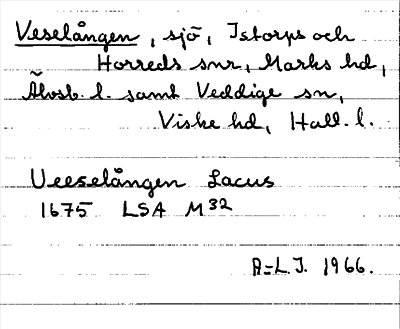 Veselången, sjö, Istorps och
Horreds snr, Marks hd,
Älvsb. l. samt Veddige sn,
Viske hd, Hall. l.
Veeselången Lacus
1675 LSA M32
A-L.J. 1966.